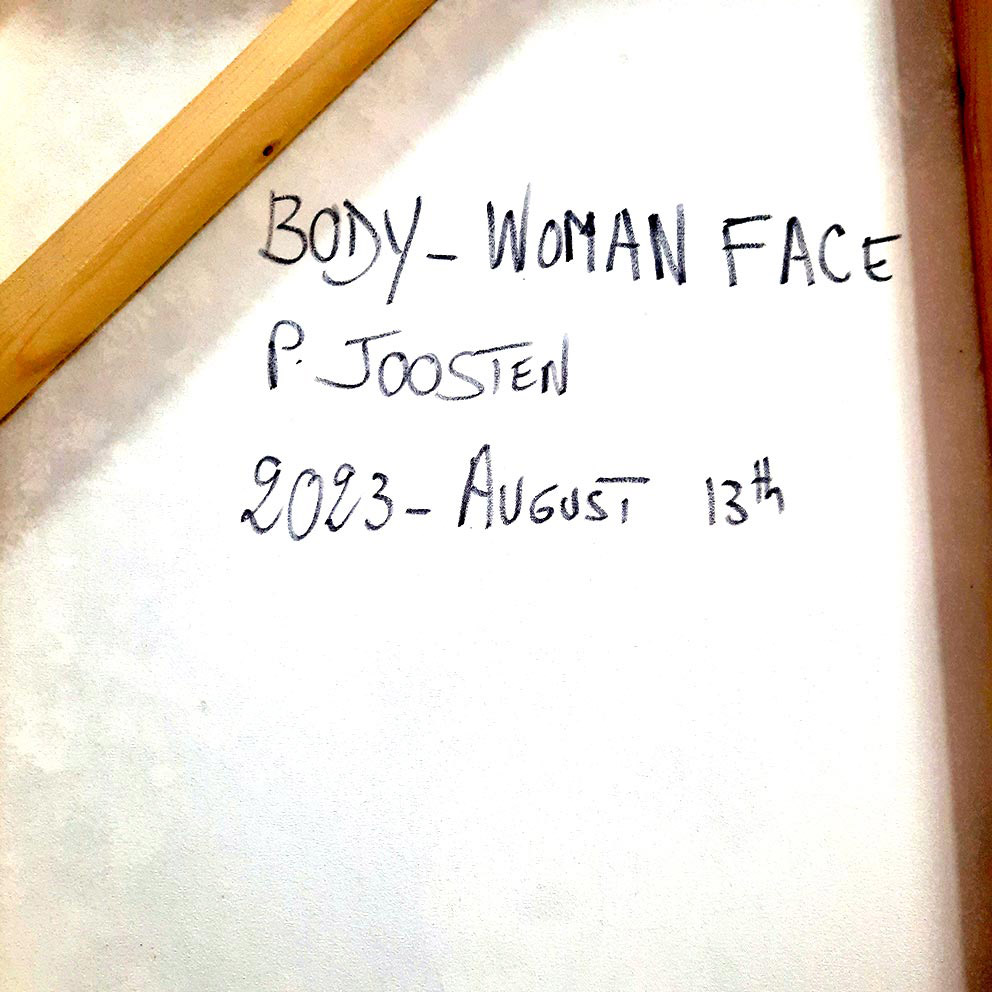 BODY - WOMAN FACE
P. JOOSTEN
2023 - AUGUST 13th